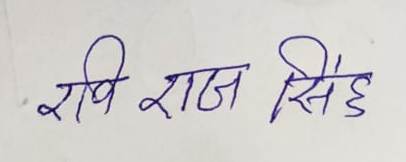 रवि राज सिंह